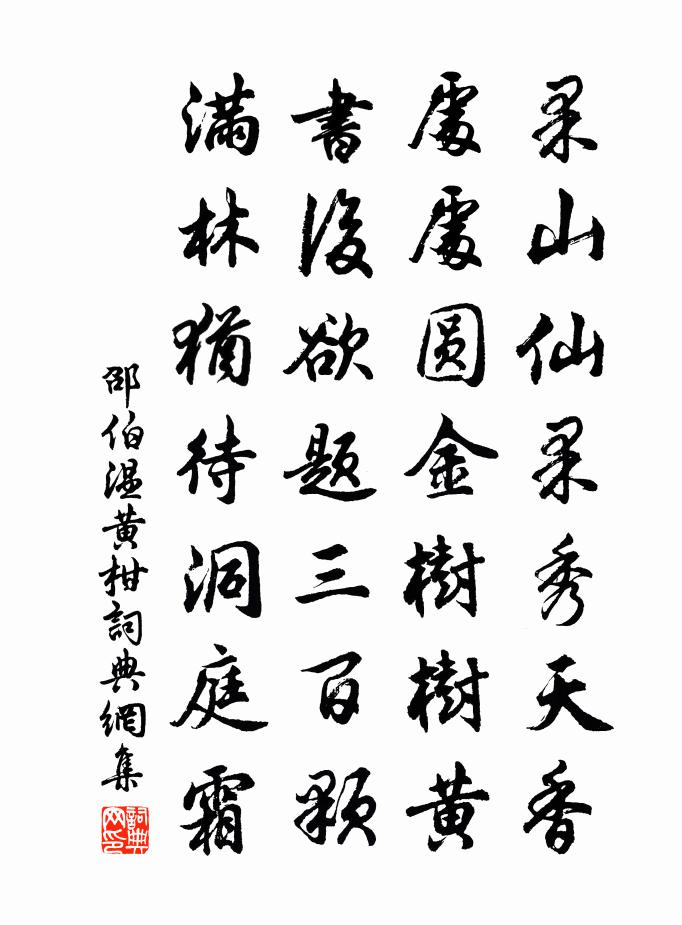 果山仙果秀天香
處處圆金樹樹黄
書後欲题三百顆
滿林猶待洞庭霜
邵伯温黄柑詞典網集
詞典网印